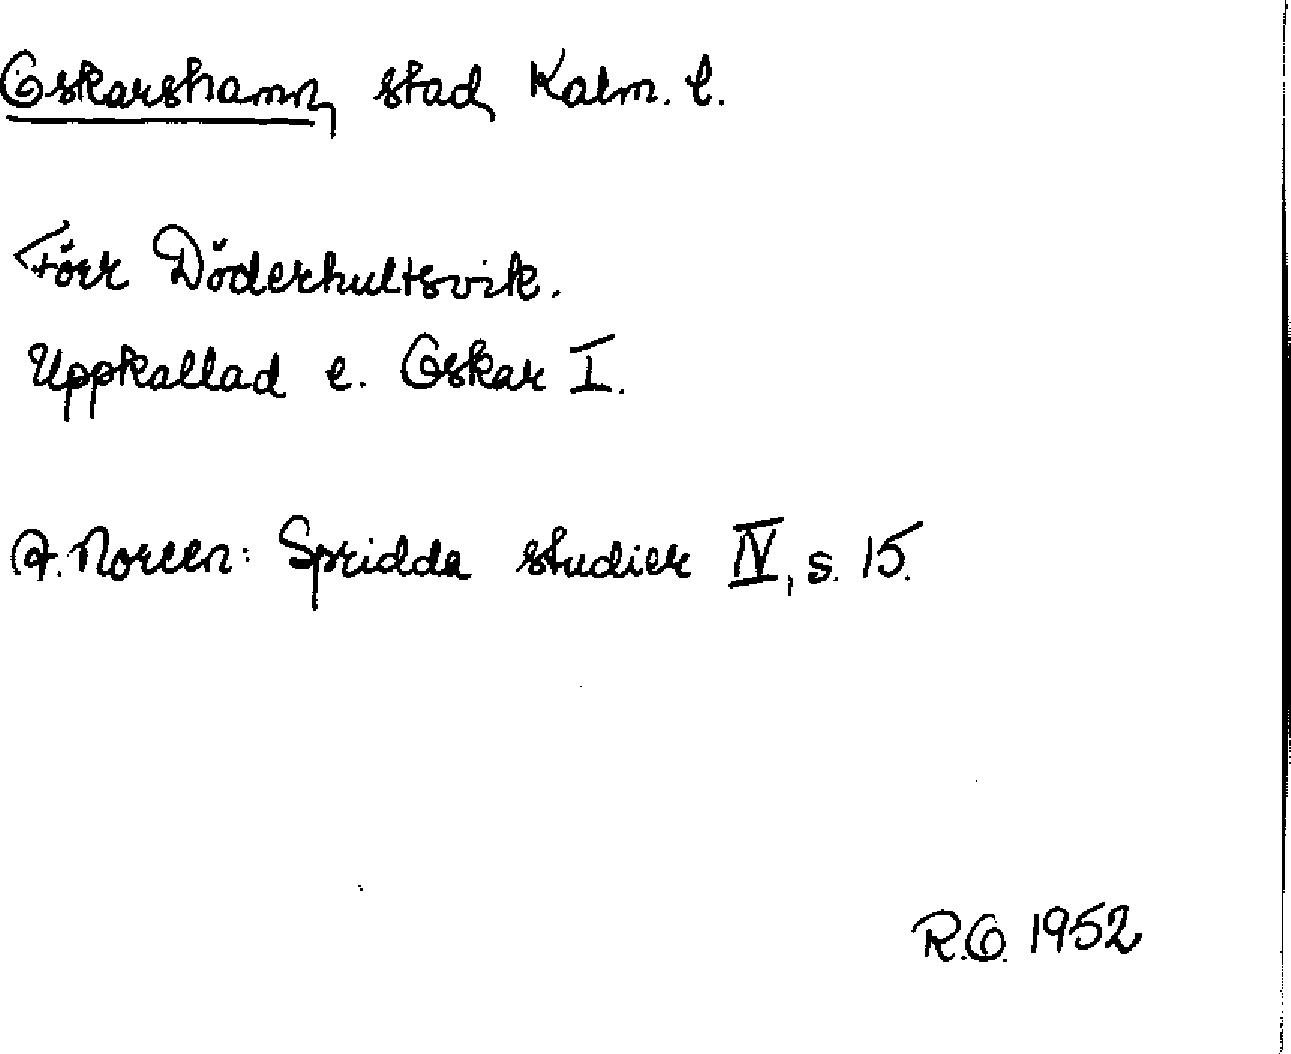 Oskarshamn, stad, Kalm. l.
Förr Döderhultsvik.
Uppkallad e. Oskar I.
A. Noreen: Spridda studier IV, s. 15.
R.O. 1952